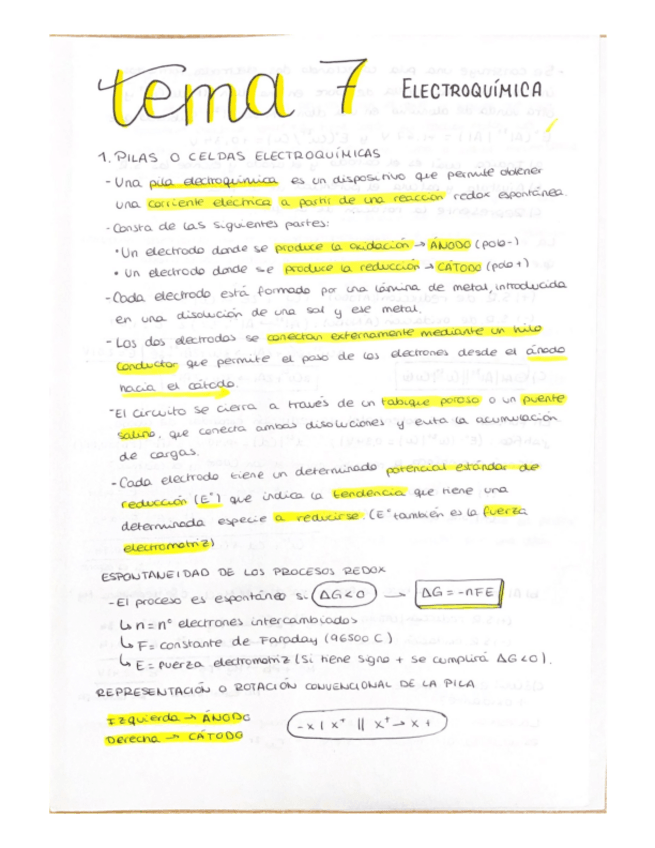 tema 7 ELECTROQUÍMICA
1. PILAS O CELDAS ELECTROQUÍMICAS
- Una pila electroquímica es un dispositivo que permite obtener
una corriente eléctrica a partir de una reacción redox espontánea.
- Consta de las siguientes partes:
• Un electrodo donde se produce la oxidación → ÁNODO (polo -)
• Un electrodo donde se produce la reducción → CÁTODO (polo +)
- Cada electrodo está formado por una lámina de metal, introducida
en una disolución de una sal y ese metal.
- Los dos electrodos se conectan externamente mediante un hilo
conductor que permite el paso de los electrones desde el ánodo
hacia el cátodo.
- El circuito se cierra a través de un tabique poroso o un puente
salino, que conecta ambas disoluciones y evita la acumulación
de cargas.
- Cada electrodo tiene un determinado potencial estándar de
reducción (E°) que indica la tendencia que tiene una
determinada especie a reducirse. (E° también es la fuerza
electromotriz)
ESPONTANEIDAD DE LOS PROCESOS REDOX
- El proceso es espontáneo si ΔG<0 → ΔG = -nFE
↳ n = nº electrones intercambiados
↳ F = constante de Faraday (96500 C)
↳ E = fuerza electromotriz (Si tiene signo + se cumplirá ΔG<0).
REPRESENTACIÓN O ROTACIÓN CONVENCIONAL DE LA PILA
Izquierda → ÁNODO
Derecha → CÁTODO
- x | x⁺ || x⁺ → x +